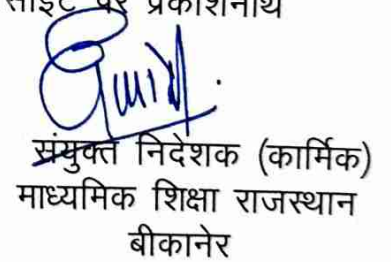 साईट पर प्रकाशनार्थ
संयुक्त निदेशक (कार्मिक)
माध्यमिक शिक्षा राजस्थान
बीकानेर